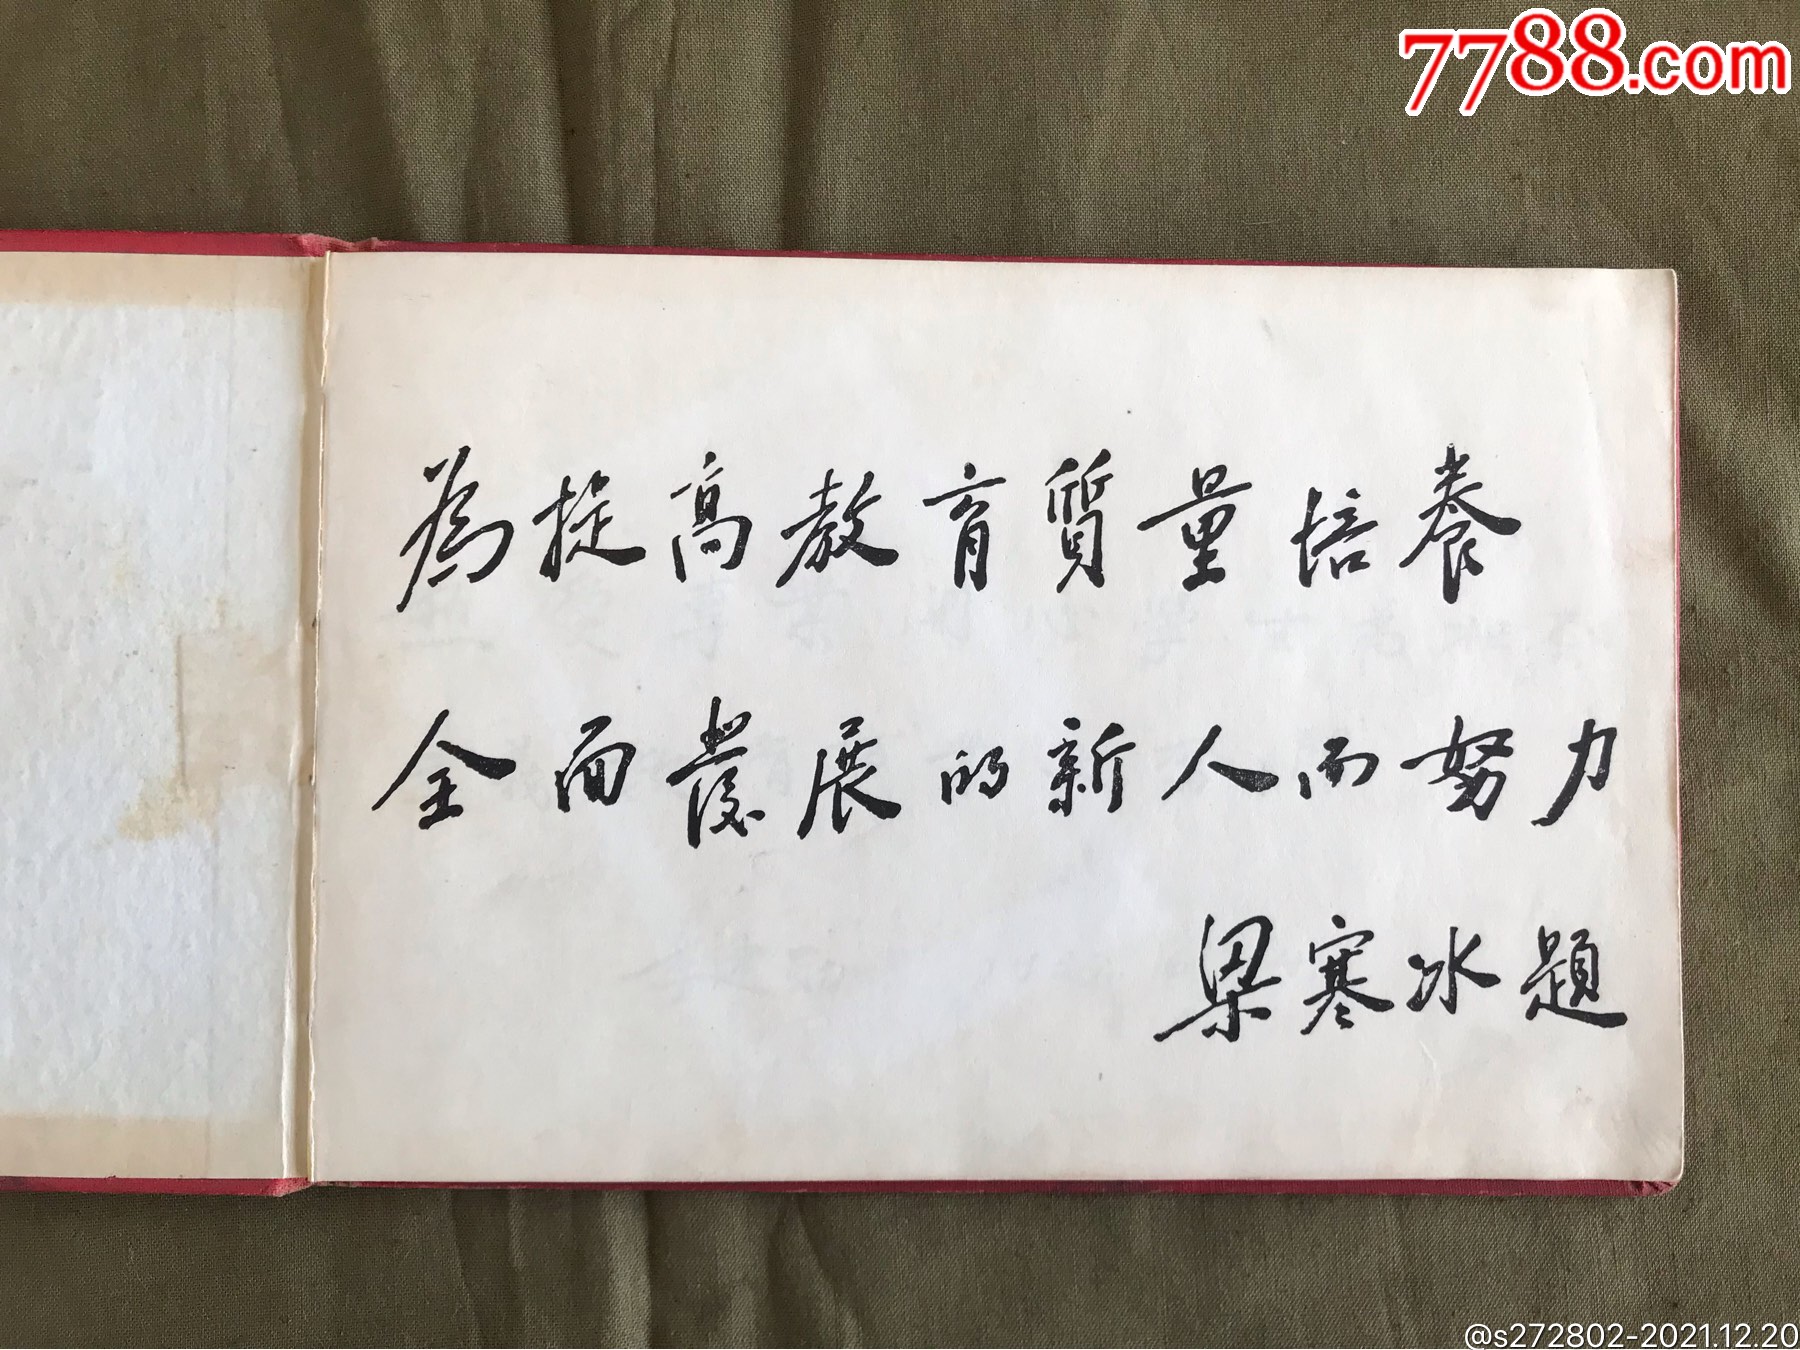 7788.com
為提高教育質量培養
全面發展的新人而努力
梁寒冰題
@s272802-2021.12.20